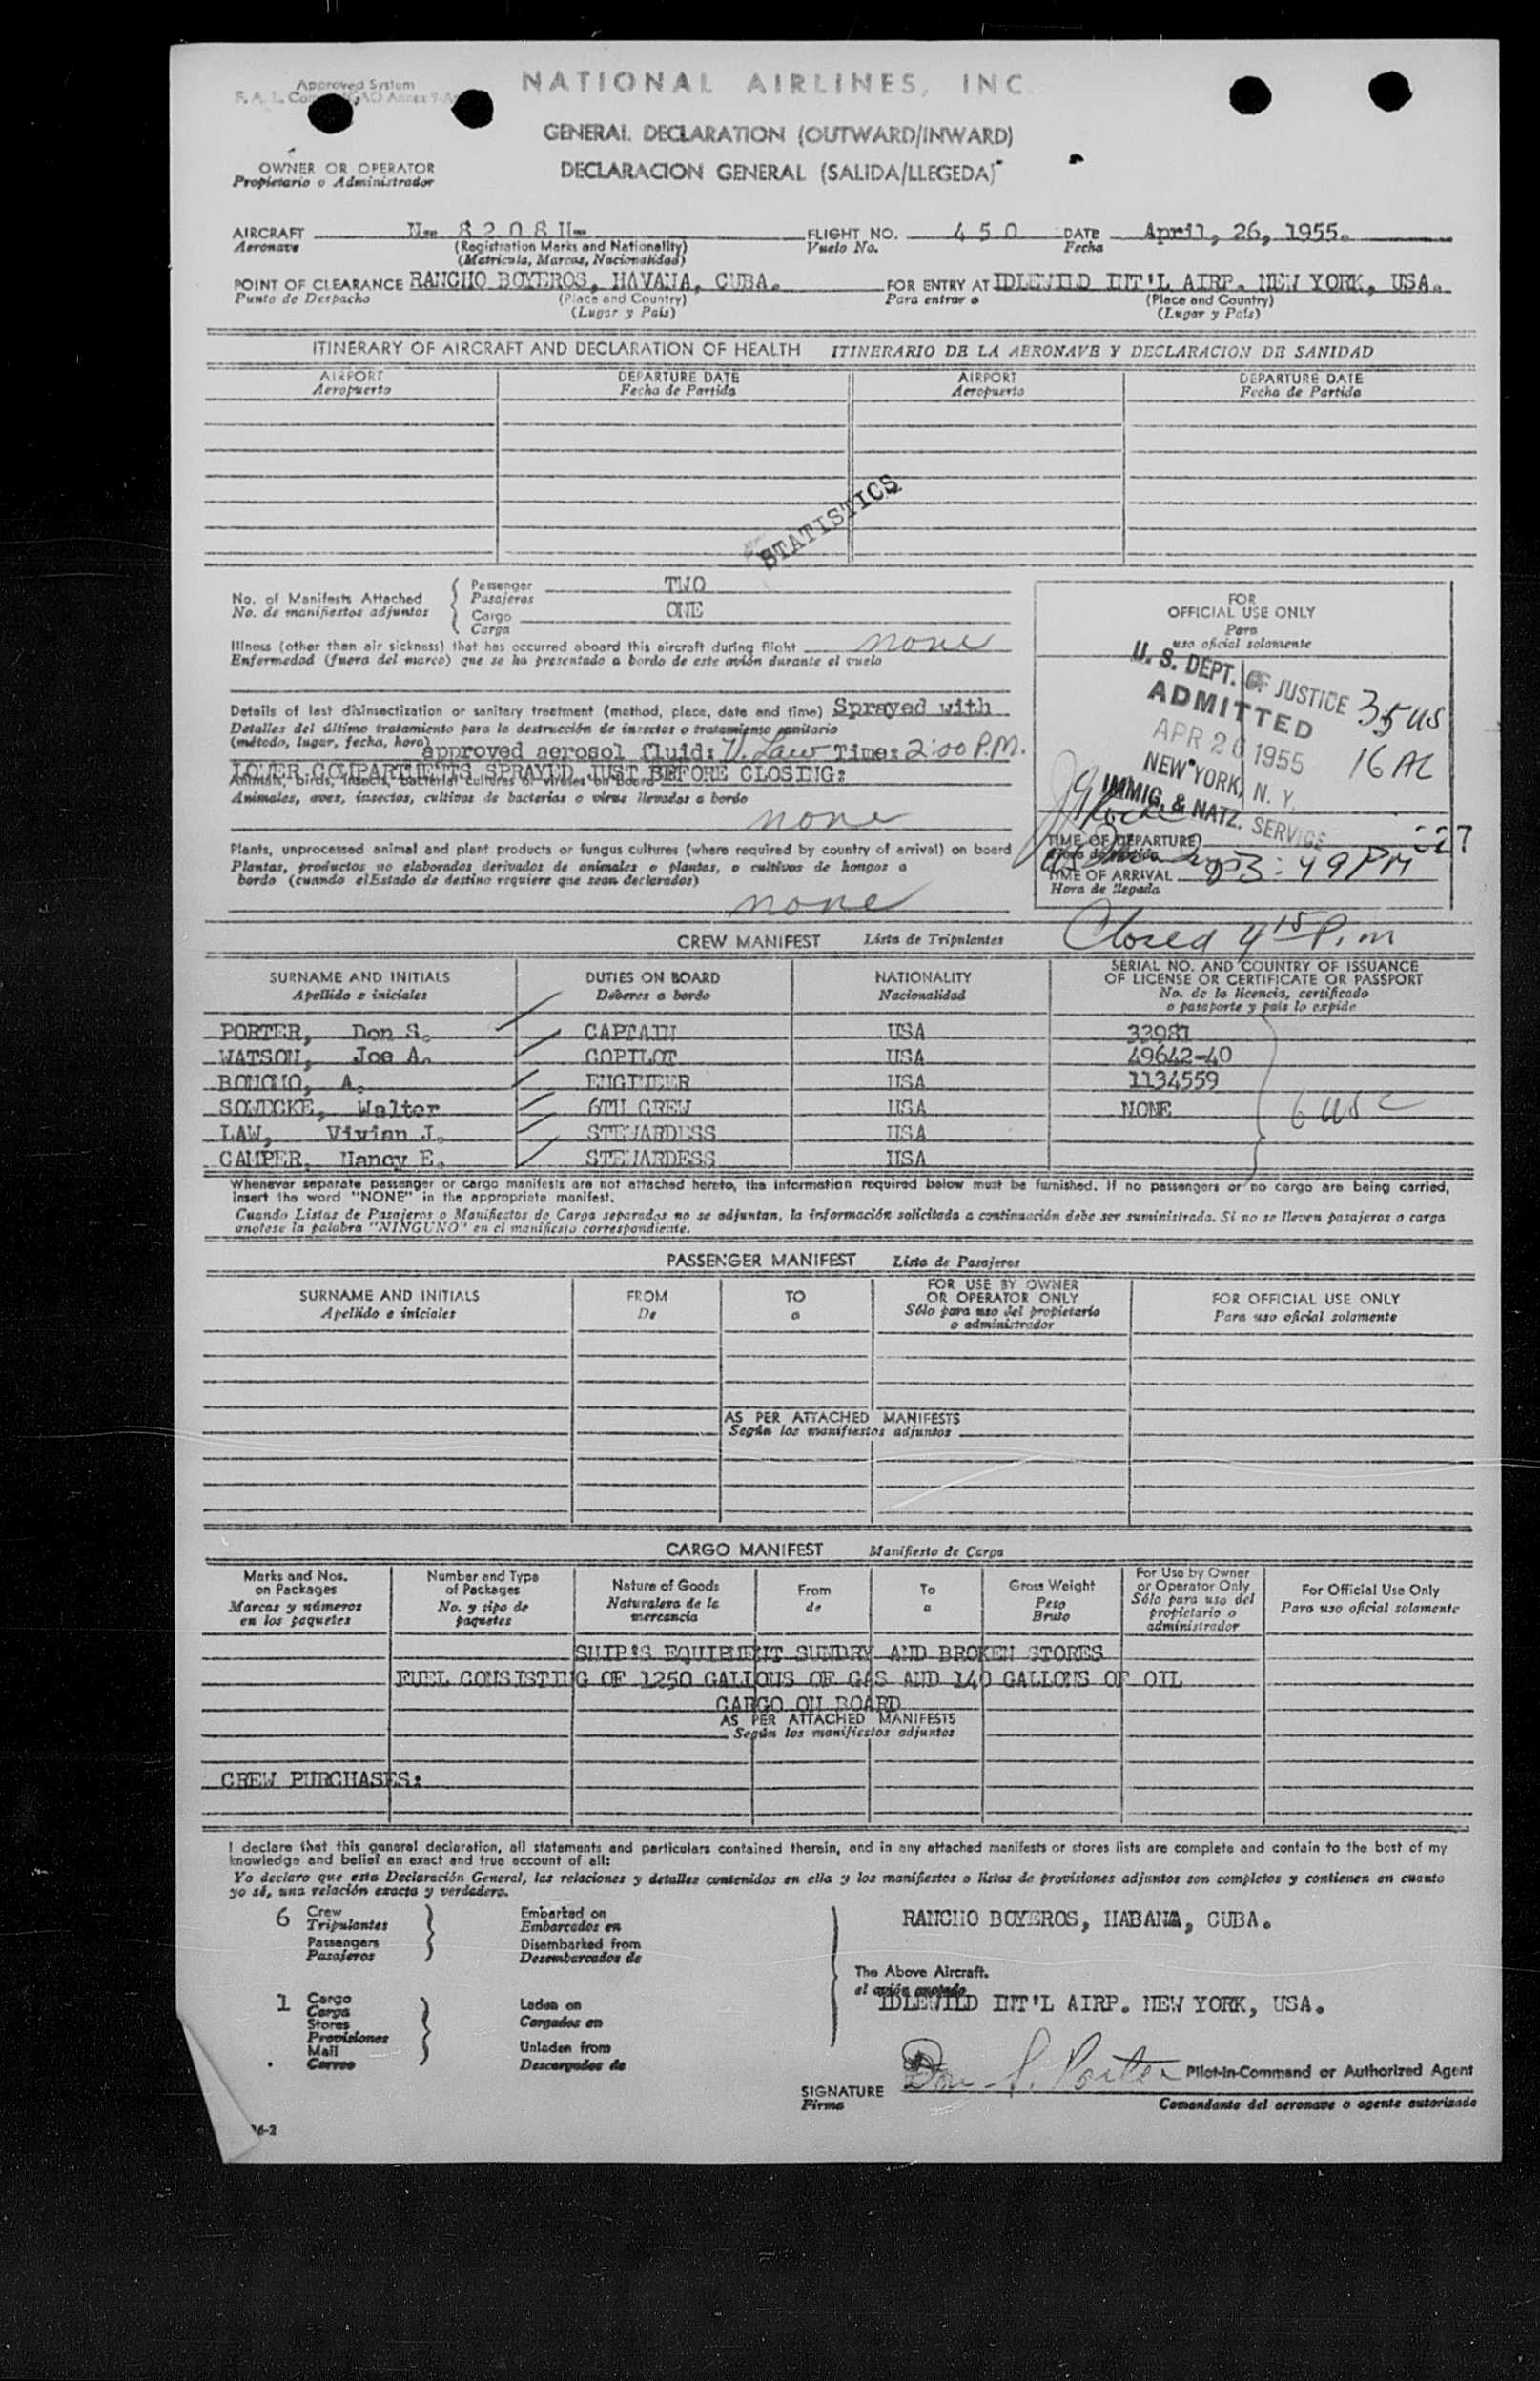 Approved System
NATIONAL AIRLINES, INC
GENERAL DECLARATION (OUTWARD/INWARD)
DECLARACION GENERAL (SALIDA/LLEGEDA)
OWNER OR OPERATOR
Propietario o Administrador
AIRCRAFT N-- 8208H- FLIGHT NO. 450 DATE April, 26, 1955.
Aeronave (Registration Marks and Nationality) Vuelo No. Fecha
(Matricula, Marcas, Nacionalidad)
POINT OF CLEARANCE RANCHO BOYEROS, HAVANA, CUBA. FOR ENTRY AT IDLEWILD INT'L AIRP. NEW YORK, USA.
Punto de Despacho (Place and Country) Para entrar a (Place and Country)
(Lugar y Pais) (Lugar y Pais)
ITINERARY OF AIRCRAFT AND DECLARATION OF HEALTH ITINERARIO DE LA AERONAVE Y DECLARACION DE SANIDAD
AIRPORT DEPARTURE DATE AIRPORT DEPARTURE DATE
Aeropuerto Fecha de Partida Aeropuerto Fecha de Partida
STATISTICS
No. of Manifests Attached
No. de manifiestos adjuntos
Passenger TWO
Pasajeros
Cargo ONE
Carga
Illness (other than air sickness) that has occurred aboard this aircraft during flight none
Enfermedad (fuera del mareo) que se ha presentado a bordo de este avión durante el vuelo
Details of last disinsectization or sanitary treatment (method, place, date and time) Sprayed with
Detalles del último tratamiento para la destrucción de insectos o tratamiento sanitario
(método, lugar, fecha, hora) approved aerosol fluid: V. Law Time: 2:00 P.M.
LOWER COMPARTMENTS SPRAYED JUST BEFORE CLOSING:
Animals, birds, insects, bacterial cultures or viruses on board
Animales, aves, insectos, cultivos de bacterias o virus llevados a bordo
none
Plants, unprocessed animal and plant products or fungus cultures (where required by country of arrival) on board
Plantas, productos no elaborados derivados de animales o plantas, o cultivos de hongos a
bordo (cuando elEstado de destino requiere que sean declarados)
none
FOR
OFFICIAL USE ONLY
Para
uso oficial solamente
U. S. DEPT. OF JUSTICE
ADMITTED
APR 26 1955
NEW YORK, N. Y.
IMMIG. & NATZ. SERVICE
35 US
16 AL
TIME OF DEPARTURE
TIME OF ARRIVAL 3:49 PM
Hora de llegada
Closed 4 15 P.m
CREW MANIFEST Lista de Tripulantes
SURNAME AND INITIALS DUTIES ON BOARD NATIONALITY SERIAL NO. AND COUNTRY OF ISSUANCE
OF LICENSE OR CERTIFICATE OR PASSPORT
Apellido e iniciales Deberes a bordo Nacionalidad No. de la licencia, certificado
o pasaporte y pais lo expide
PORTER, Don S. CAPTAIN USA 33981
WATSON, Joe A. COPILOT USA 49642-40
BONOMO, A. ENGINEER USA 1134559
SOWICKE, Walter 6TH CREW USA NONE
LAW, Vivian J. STEWARDESS USA
CAMPER, Nancy E. STEWARDESS USA
6 USC
Whenever separate passenger or cargo manifests are not attached hereto, the information required below must be furnished. If no passengers or no cargo are being carried,
insert the word "NONE" in the appropriate manifest.
Cuando Listas de Pasajeros o Manifiestos de Carga separados no se adjuntan, la información solicitada a continuación debe ser suministrada. Si no se lleven pasajeros o carga
anotese la palabra "NINGUNO" en el manifiesto correspondiente.
PASSENGER MANIFEST Lista de Pasajeros
SURNAME AND INITIALS FROM TO FOR USE BY OWNER
OR OPERATOR ONLY FOR OFFICIAL USE ONLY
Apellido e iniciales De a Sólo para uso del propietario
o administrador Para uso oficial solamente
AS PER ATTACHED MANIFESTS
Según los manifiestos adjuntos
CARGO MANIFEST Manifiesto de Carga
Marks and Nos.
on Packages
Marcas y números
en los paquetes
Number and Type
of Packages
No. y tipo de
paquetes
Nature of Goods
Naturaleza de la
mercancia
From
de
To
a
Gross Weight
Peso
Bruto
For Use by Owner
or Operator Only
Sólo para uso del
propietario o
administrador
For Official Use Only
Para uso oficial solamente
SHIP'S EQUIPMENT SUNDRY AND BROKEN STORES
FUEL CONSISTING OF 1250 GALLONS OF GAS AND 140 GALLONS OF OIL
CARGO ON BOARD
AS PER ATTACHED MANIFESTS
Según los manifiestos adjuntos
CREW PURCHASES:
I declare that this general declaration, all statements and particulars contained therein, and in any attached manifests or stores lists are complete and contain to the best of my
knowledge and belief an exact and true account of all:
Yo declaro que esta Declaración General, las relaciones y detalles contenidos en ella y los manifiestos o listas de provisiones adjuntos son completos y contienen en cuanto
yo sé, una relación exacta y verdadera.
6 Crew
Tripulantes
Passengers
Pasajeros
Embarked on
Embarcados en
Disembarked from
Desembarcados de
RANCHO BOYEROS, HABANA, CUBA.
The Above Aircraft.
el avión anotado
IDLEWILD INT'L AIRP. NEW YORK, USA.
1 Cargo
Carga
Stores
Provisiones
Mail
Correo
Laden on
Cargados en
Unladen from
Descargados de
SIGNATURE Don S. Porter Pilot-in-Command or Authorized Agent
Firma Comandante del aeronave o agente autorizado